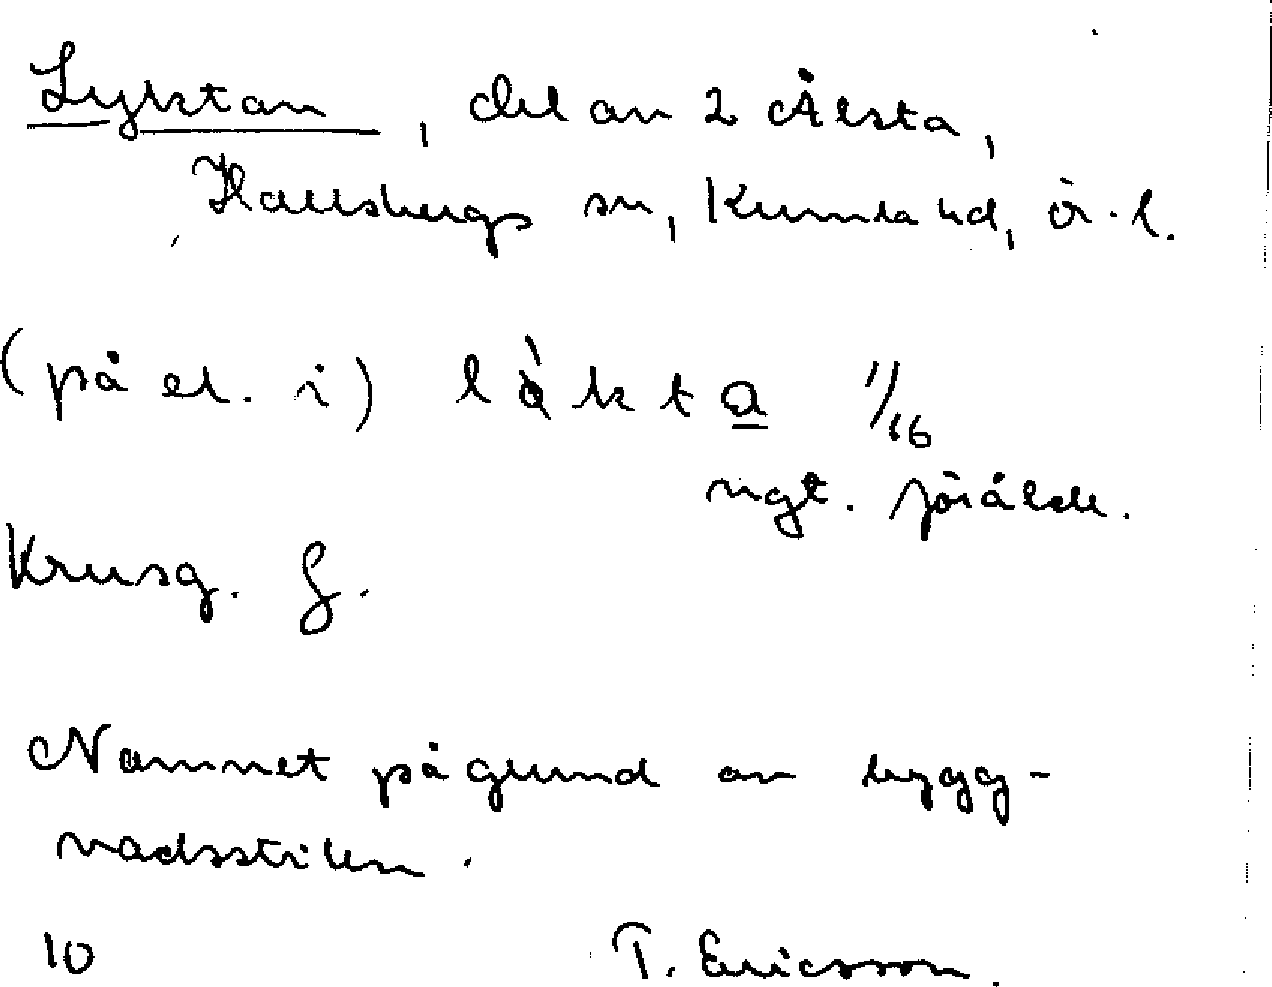 Lyktan, del av 2 Ålsta,
Hallsbergs sn, Kumla hd, ör. l.
(på el. i) lòkta 11/16
ngt. föråldr.
Krusg. f.
Namnet på grund av bygg-
nadsstilen.
10 T. Ericsson.